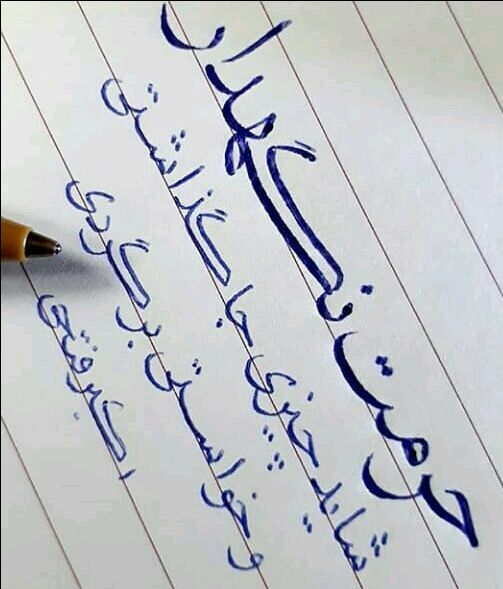 حرمت نگهدار
شاید چیزی جا گذاشتی
و خواستی برگردی
اکبر فتحی